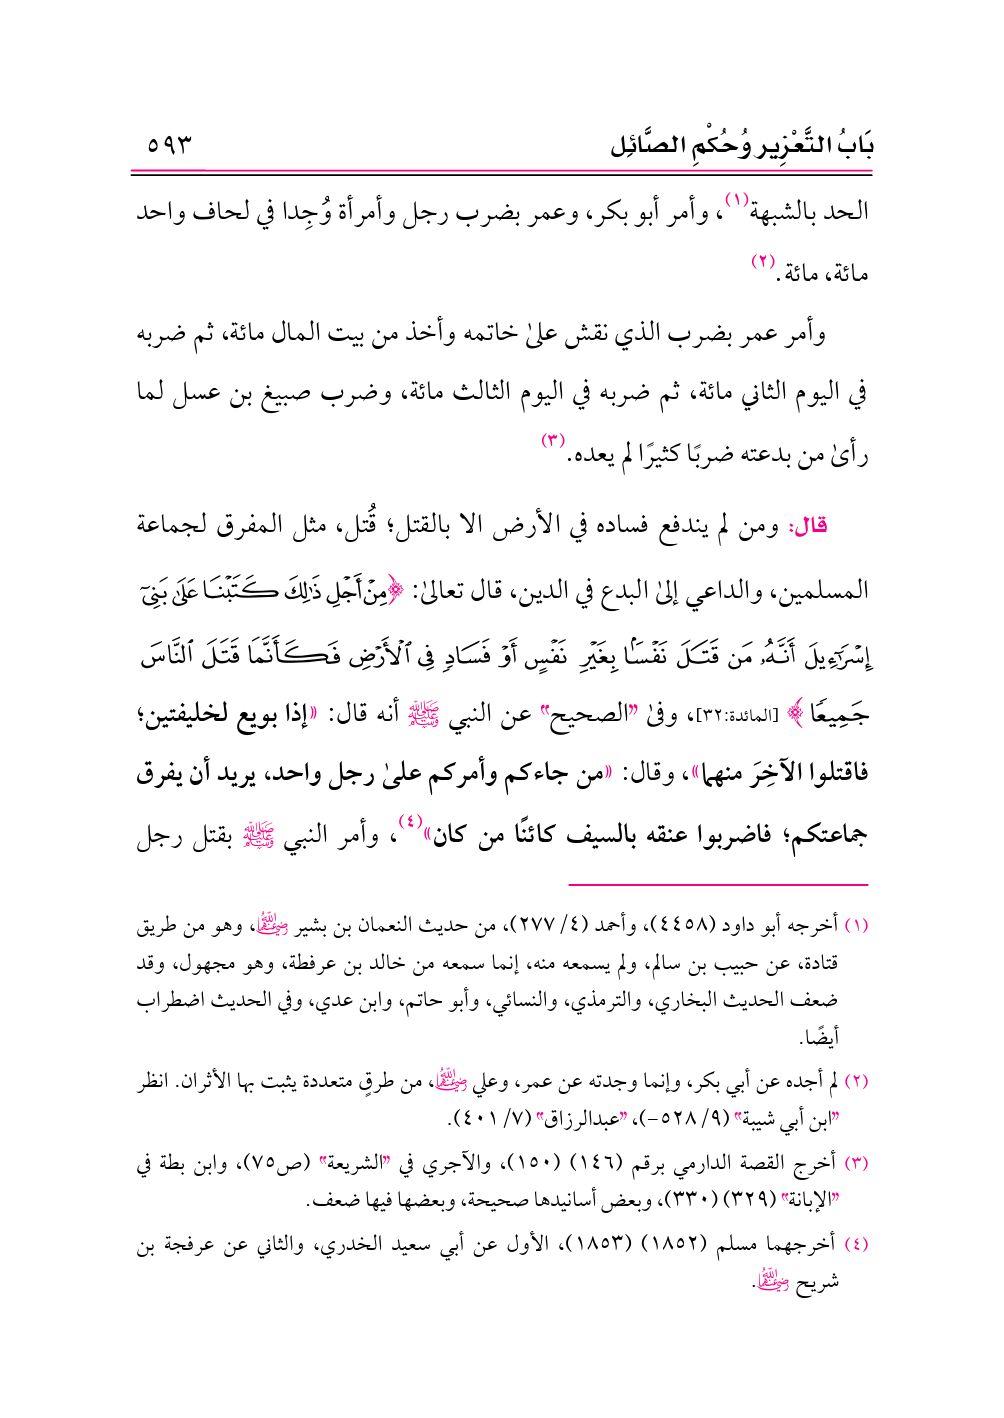 بَابُ التَّعْزِيرِ وُحُكْمِ الصَّائِل ٥٩٣
الحد بالشبهة(١)، وأمر أبو بكر، وعمر بضرب رجل وأمرأة وُجِدا في لحاف واحد
مائة، مائة.(٢)
وأمر عمر بضرب الذي نقش علىٰ خاتمه وأخذ من بيت المال مائة، ثم ضربه
في اليوم الثاني مائة، ثم ضربه في اليوم الثالث مائة، وضرب صبيغ بن عسل لما
رأىٰ من بدعته ضربًا كثيرًا لم يعده.(٣)
قال: ومن لم يندفع فساده في الأرض الا بالقتل؛ قُتل، مثل المفرق لجماعة
المسلمين، والداعي إلىٰ البدع في الدين، قال تعالىٰ: ﴿مِنْ أَجْلِ ذَٰلِكَ كَتَبْنَا عَلَىٰ بَنِىٓ
إِسْرَٰٓءِيلَ أَنَّهُۥ مَن قَتَلَ نَفْسًۢا بِغَيْرِ نَفْسٍ أَوْ فَسَادٍ فِى ٱلْأَرْضِ فَكَأَنَّمَا قَتَلَ ٱلنَّاسَ
جَمِيعًا﴾ [المائدة:٣٢]، وفىٰ "الصحيح" عن النبي ﷺ أنه قال: «إذا بويع لخليفتين؛
فاقتلوا الآخِرَ منهما»، وقال: «من جاءكم وأمركم علىٰ رجل واحد، يريد أن يفرق
جماعتكم؛ فاضربوا عنقه بالسيف كائنًا من كان»(٤)، وأمر النبي ﷺ بقتل رجل
(١) أخرجه أبو داود (٤٤٥٨)، وأحمد (٤/ ٢٧٧)، من حديث النعمان بن بشير رضي الله عنهما، وهو من طريق
قتادة، عن حبيب بن سالم، ولم يسمعه منه، إنما سمعه من خالد بن عرفطة، وهو مجهول، وقد
ضعف الحديث البخاري، والترمذي، والنسائي، وأبو حاتم، وابن عدي، وفي الحديث اضطراب
أيضًا.
(٢) لم أجده عن أبي بكر، وإنما وجدته عن عمر، وعلي رضي الله عنهما، من طرقٍ متعددة يثبت بها الأثران. انظر
"ابن أبي شيبة" (٩/ ٥٢٨-)، "عبدالرزاق" (٧/ ٤٠١).
(٣) أخرج القصة الدارمي برقم (١٤٦) (١٥٠)، والآجري في "الشريعة" (ص٧٥)، وابن بطة في
"الإبانة" (٣٢٩) (٣٣٠)، وبعض أسانيدها صحيحة، وبعضها فيها ضعف.
(٤) أخرجهما مسلم (١٨٥٢) (١٨٥٣)، الأول عن أبي سعيد الخدري، والثاني عن عرفجة بن
شريح رضي الله عنهما.